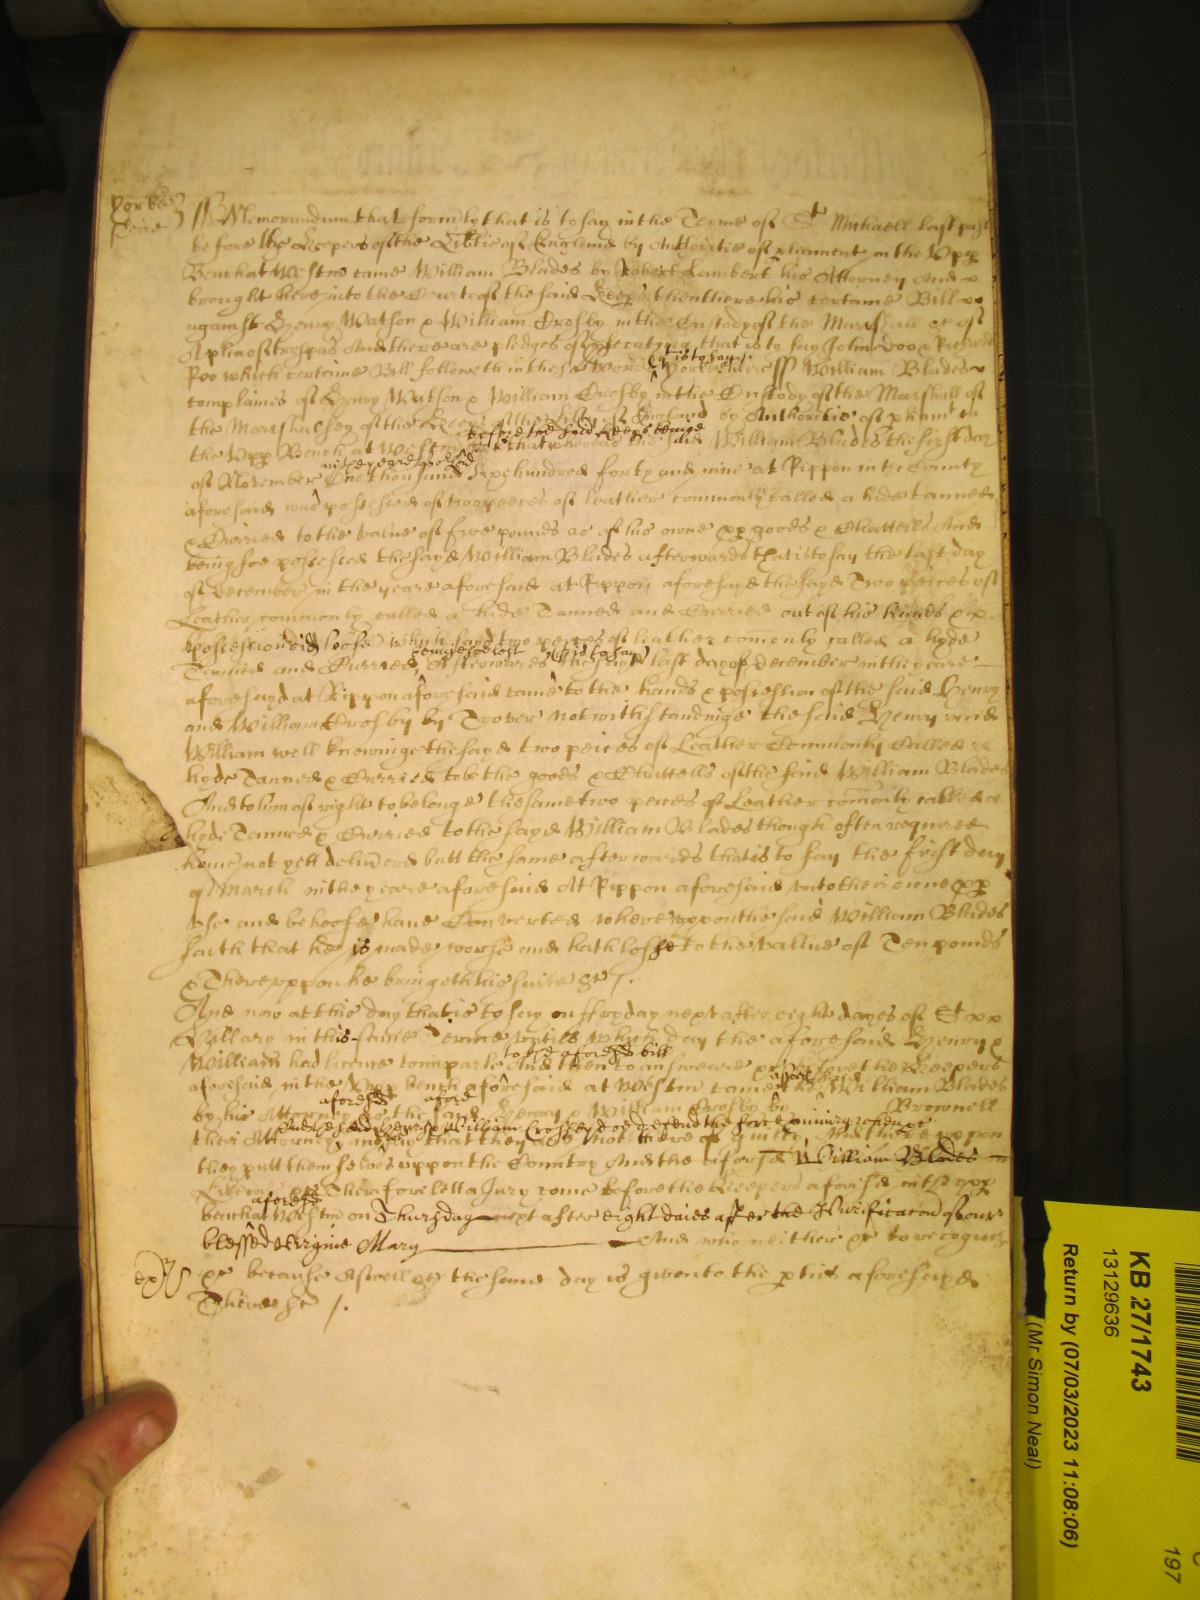 Yorke
sheire
Memorandum that formly that is to say in the Terme of St Michaell last past
before the Keepers of the Libtie of England by Authoritie of pliament in the Vpp
Bench at Westm came William Blades by Robert Lambert his Attorney And
brought here into the Court of the said Keeps then there his certaine Bill
against Henry Watson & William Crosby in the Custody of the Marshall &c of
A plea of trespas And there are pledges of psecuting that is to say John doo & Richard
Roo which certaine Bill followeth in these words
yt is to say
Yorkesheire ss William Blades
complaines of Henry Watson & William Crosby in the Custody of the Marshall of
the Marshalsey of the Keeps of the Libtie of England by Authoritie of pliament in
before the said Keeps beinge
the Vpp Bench at Westm that whereas the said William Blades the first day
in the yeare of or Lord
of November One thousand Sixe hundred forty and nine at Rippon in the County
aforesaid was possessed of two peeces of leather commonly called a hide tanned
& Curried to the value of five pounds as of his owne pp goods & Chattells And
being soe possessed the sayd William Blades afterwards that is to say the last day
of December in the yeare aforesaid at Rippon aforesayd the sayd Two peices of
Leather commonly called a hide Tanned and Curried out of his hands &
possession did loose which sayd two peeces of leather comonly called a hyde
beinge soe lost
yt is to say
Tanned and Curried Afterwards the sayd last day of december in the yeare
aforesayd at Rippon aforesaid came to the hands & possession of the said Henry
and William Crosby by Trover notwithstandinge the said Henry and
William well knowinge the sayd two peices of Leather Commonly Called a
hyde Tanned & Curried to be the goods & Chattells of the said William Blades
And to him of right to belonge the same two peeces of Leather comonly called a
hyde Tanned & Curried to the sayd William Blades though often required
have not yett delivered butt the same afterwards that is to say the first day
of March in the yeare aforesaid At Rippon aforesaid unto their owne pp
vse and behoofe have Converted wherevppon the said William Blades
saith that he is made worse and hath losse to the vallue of Ten pounds
& Therevppon he bringeth his suite &c /.
And now at this day that is to say on ffryday next after eight dayes of St
Hillary in this same Terme vntill which day the aforesaid Henry &
to the aforesd bill
William had licence to imparle And then to answeare &c before the Keepers
aforesaid in the Vpp bench aforesaid at Westm came the William Blades
aforesd
afore
by his Attorney the said Henry & William Crosby by Brownell
And the said Henry & William Crosbey doe defend the force & iniury when &c
their Attorney and say that they are not thereof guilty And therevppon
they putt themselves vppon the Country And the aforesd William Blades
likewise Therefore lett a Jury come before the Keepers aforesd in the vpp
aforesd
bench at Westm on Thursday next after eight daies after the Purification of our
blessed Virgine Mary And who neither &c to recognize
&c because Aswell &c the same day is given to the pties aforesayd
There &c /.